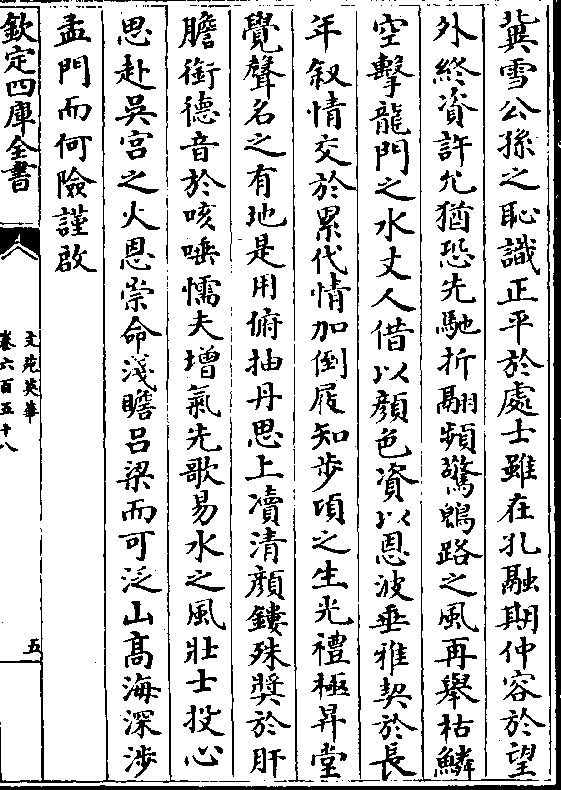 冀雪公孫之恥識正平於處士雖在孔融期仲容於望
外終資許允猶恐先馳折翮頻驚鴳路之風再舉枯鱗
空擊龍門之水丈人借以顔色資以恩波垂雅契於長
年叙情交於累代情加倒屐知步頃之生光禮極昇堂
覺聲名之有地是用俯抽丹思上凟清顔鏤殊奬於肝
膽銜德音於咳唾懦夫增氣先歌易水之風壯士投心
思赴吳宫之火恩崇命淺瞻吕梁而可泛山髙海深涉
孟門而何險謹啟
欽定四庫全書
文苑英華
卷六百五十八
五